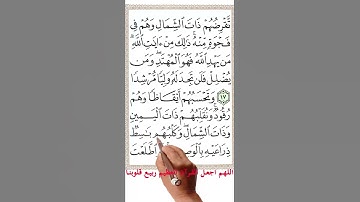 تَّقْرِضُهُمْ ذَاتَ ٱلشِّمَالِ وَهُمْ فِى
فَجْوَةٍ مِّنْهُ ذَٰلِكَ مِنْ ءَايَٰتِ ٱللَّهِ
مَن يَهْدِ ٱللَّهُ فَهُوَ ٱلْمُهْتَدِ وَمَن
يُضْلِلْ فَلَن تَجِدَ لَهُۥ وَلِيًّا مُّرْشِدًا
١٧ وَتَحْسَبُهُمْ أَيْقَاظًا وَهُمْ
رُقُودٌ وَنُقَلِّبُهُمْ ذَاتَ ٱلْيَمِينِ
وَذَاتَ ٱلشِّمَالِ وَكَلْبُهُم بَٰسِطٌ
ذِرَاعَيْهِ بِٱلْوَصِيدِ ٱطَّلَعْتَ
اللهم اجعل القرآن العظيم ربيع قلوبنا